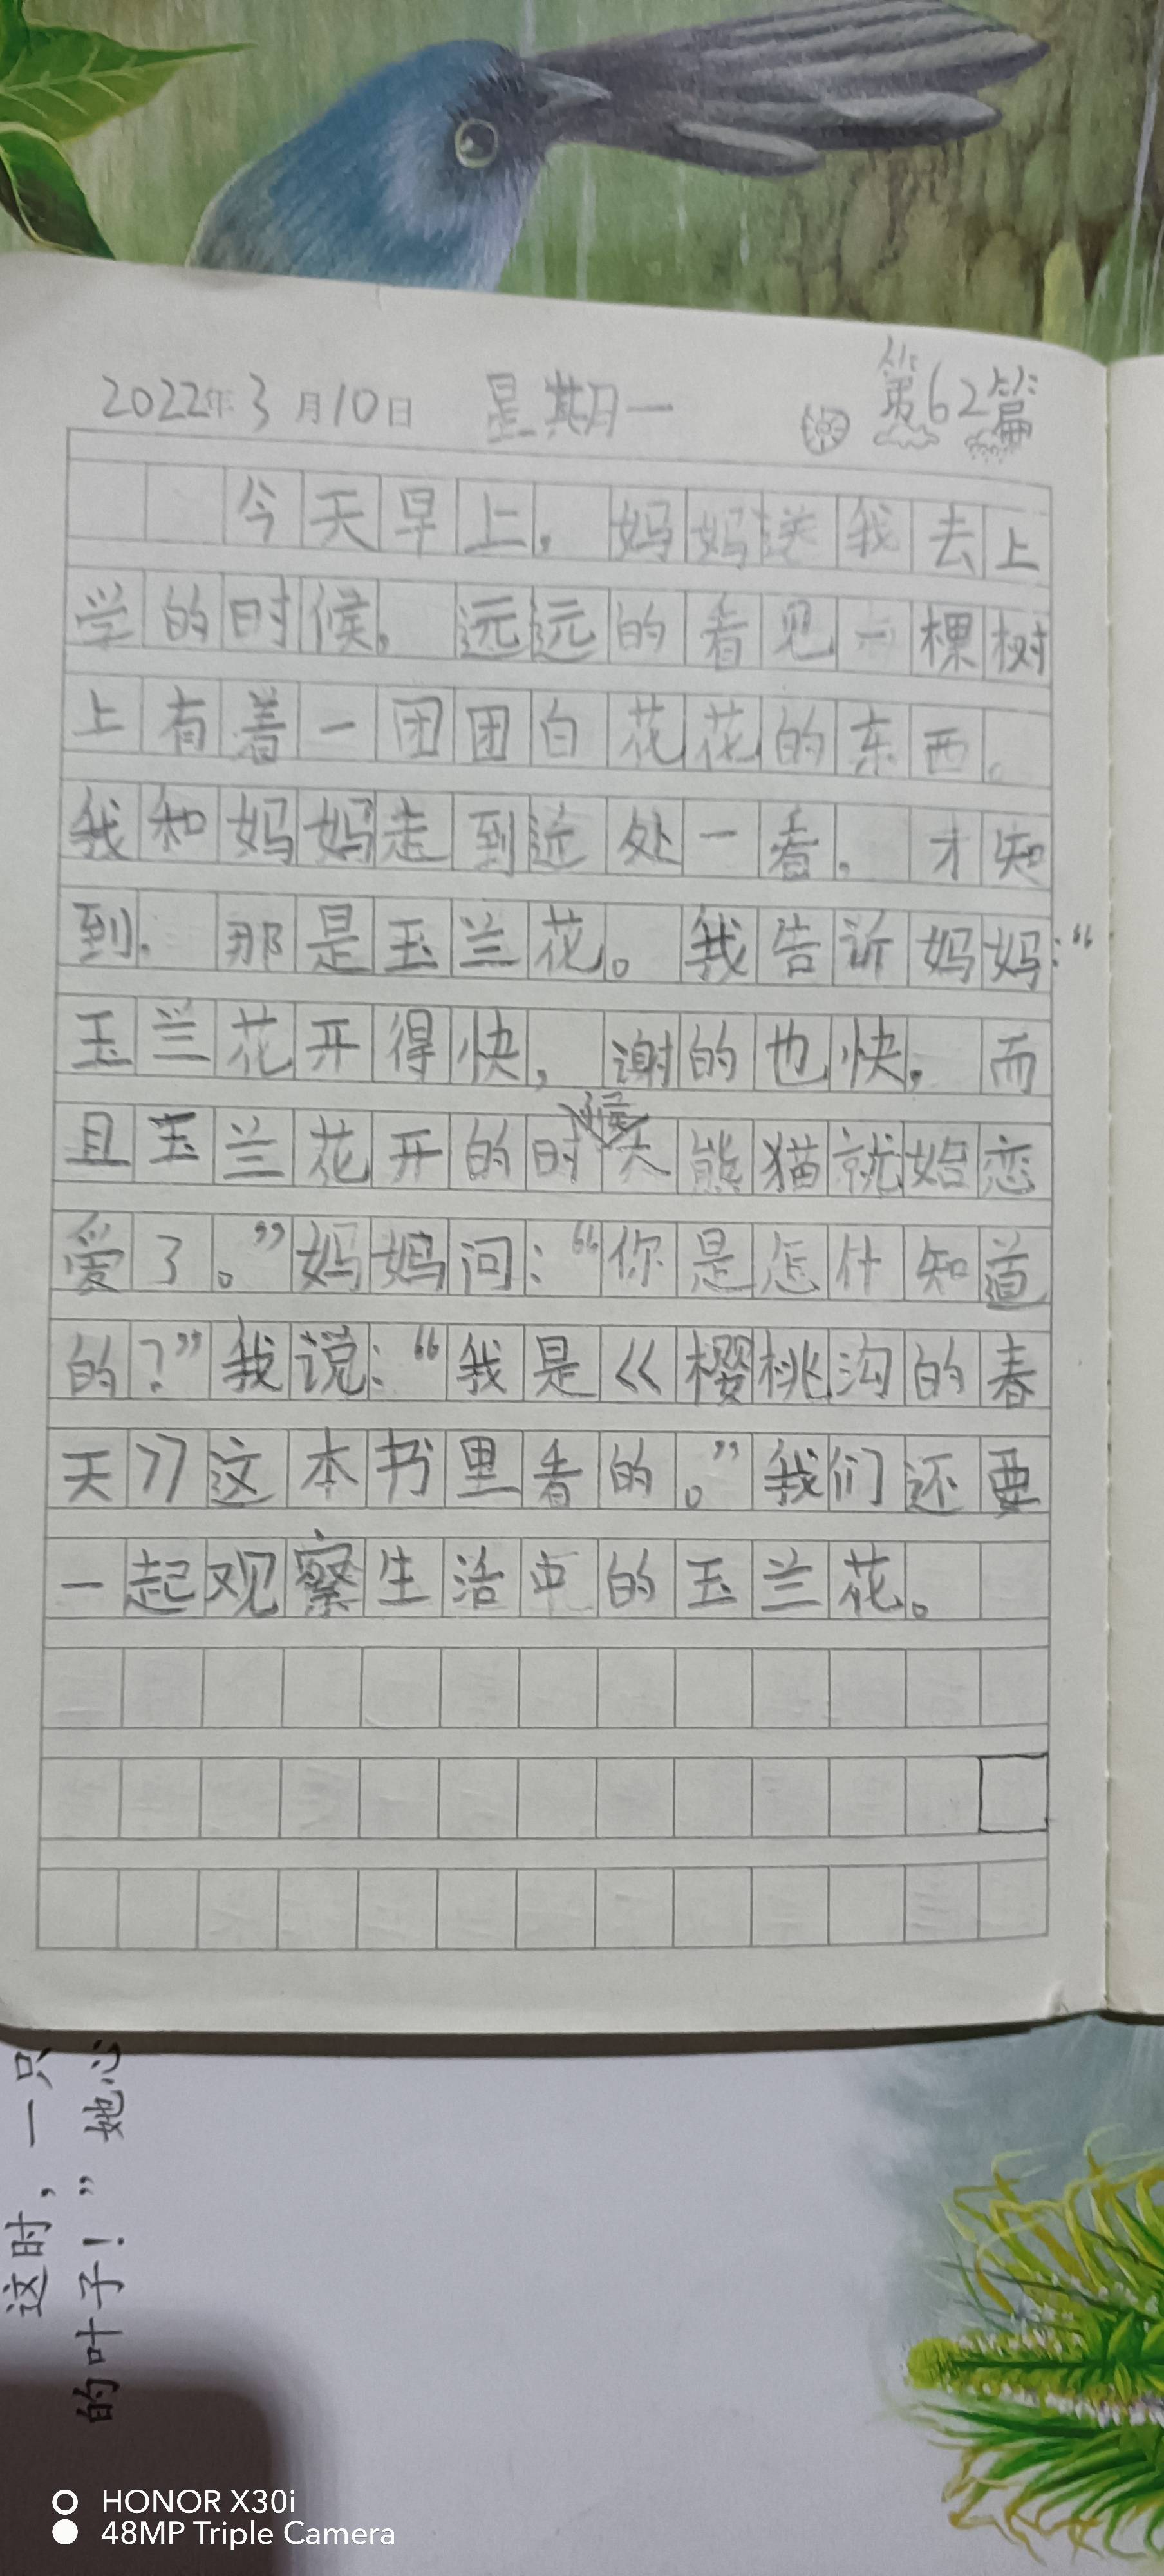 2022年3月10日 星期一 第62篇
今天早上，妈妈送我去上
学的时候，远远的看见一棵树
上有着一团团白花花的东西。
我和妈妈走到近处一看，才知
到，那是玉兰花。我告诉妈妈：“
玉兰花开得快，谢的也快，而
且玉兰花开的时候大熊猫就始恋
爱了。”妈妈问：“你是怎什知道
的？”我说：“我是《樱桃沟的春
天》这本书里看的。”我们还要
一起观察生活中的玉兰花。
这时，一只
的叶子！”她心
HONOR X30i
48MP Triple Camera